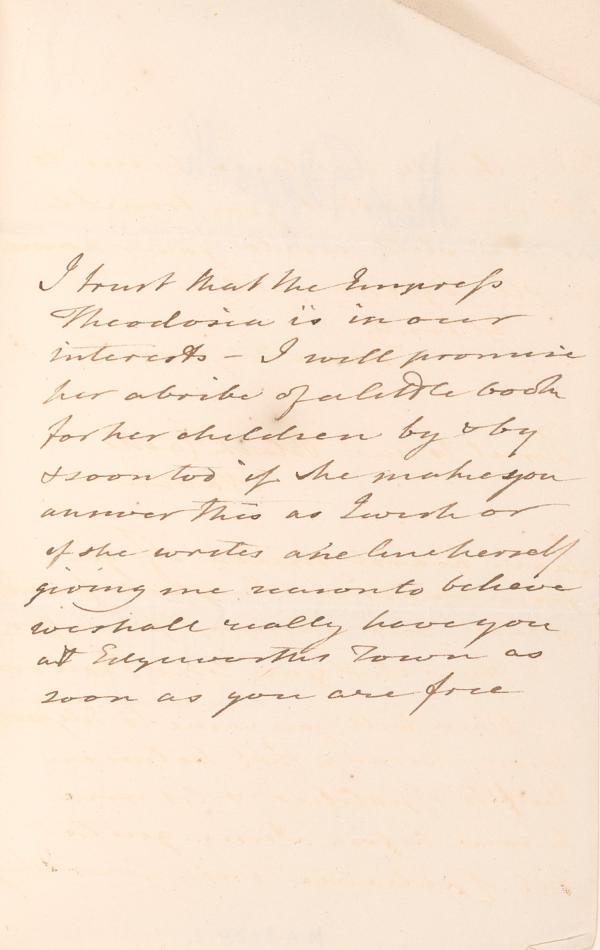 I trust that the Empress
Theodosia is in our
interests – I will promise
her a bribe of a little book
for her children by & by
& soon too if she makes you
answer this as I wish or
if she writes one line herself
giving me reason to believe
we shall really have you
at Edgeworths Town as
soon as you are free